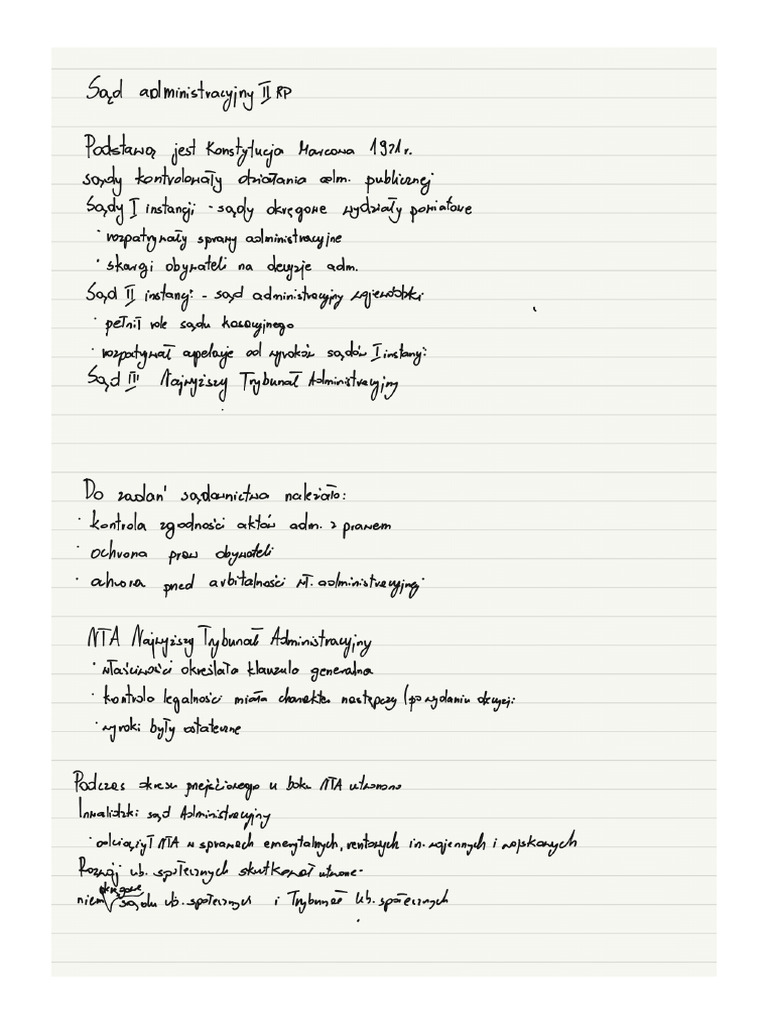 Sąd administracyjny II RP
Podstawą jest Konstytucja Marcowa 1921r.
sądy kontrolowały działania adm. publicznej
Sądy I instancji - sądy okręgowe wydziały powiatowe
· rozpatrywały sprawy administracyjne
· skargi obywateli na decyzje adm.
Sąd II instancji - sąd administracyjny wojewódzki
· pełnił role sądu kasacyjnego
· rozpatrywał apelacje od wyroków sądów I instancji
Sąd III Najwyższy Trybunał Administracyjny
Do zadań sądownictwa należało:
· kontrola zgodności aktów adm. z prawem
· ochrona praw obywateli
· ochrona przed arbitalności wł. administracyjnej
NTA Najwyższy Trybunał Administracyjny
· właściwości określała klauzula generalna
· kontrola legalności miała charakter następczy (po wydaniu decyzji
· wyroki były ostateczne
Podczas okresu przejściowego u boku NTA utworzono
Inwalidzki sąd Administracyjny
· odciążył NTA w sprawach emerytalnych, rentowych in. wojennych i wojskowych
Rozwój ub. społecznych skutkował utworze-
niem okręgowe sądu ub. społecznych i Trybunał Ub. społecznych